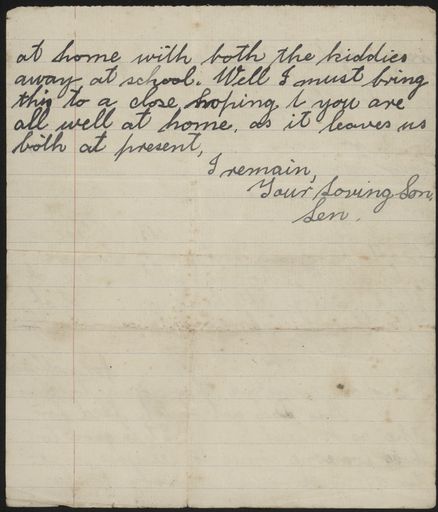 at home with both the kiddies
away at school. Well I must bring
this to a close, hoping t you are
all well at home, as it leaves us
both at present,
I remain,
Your loving Son,
Len.